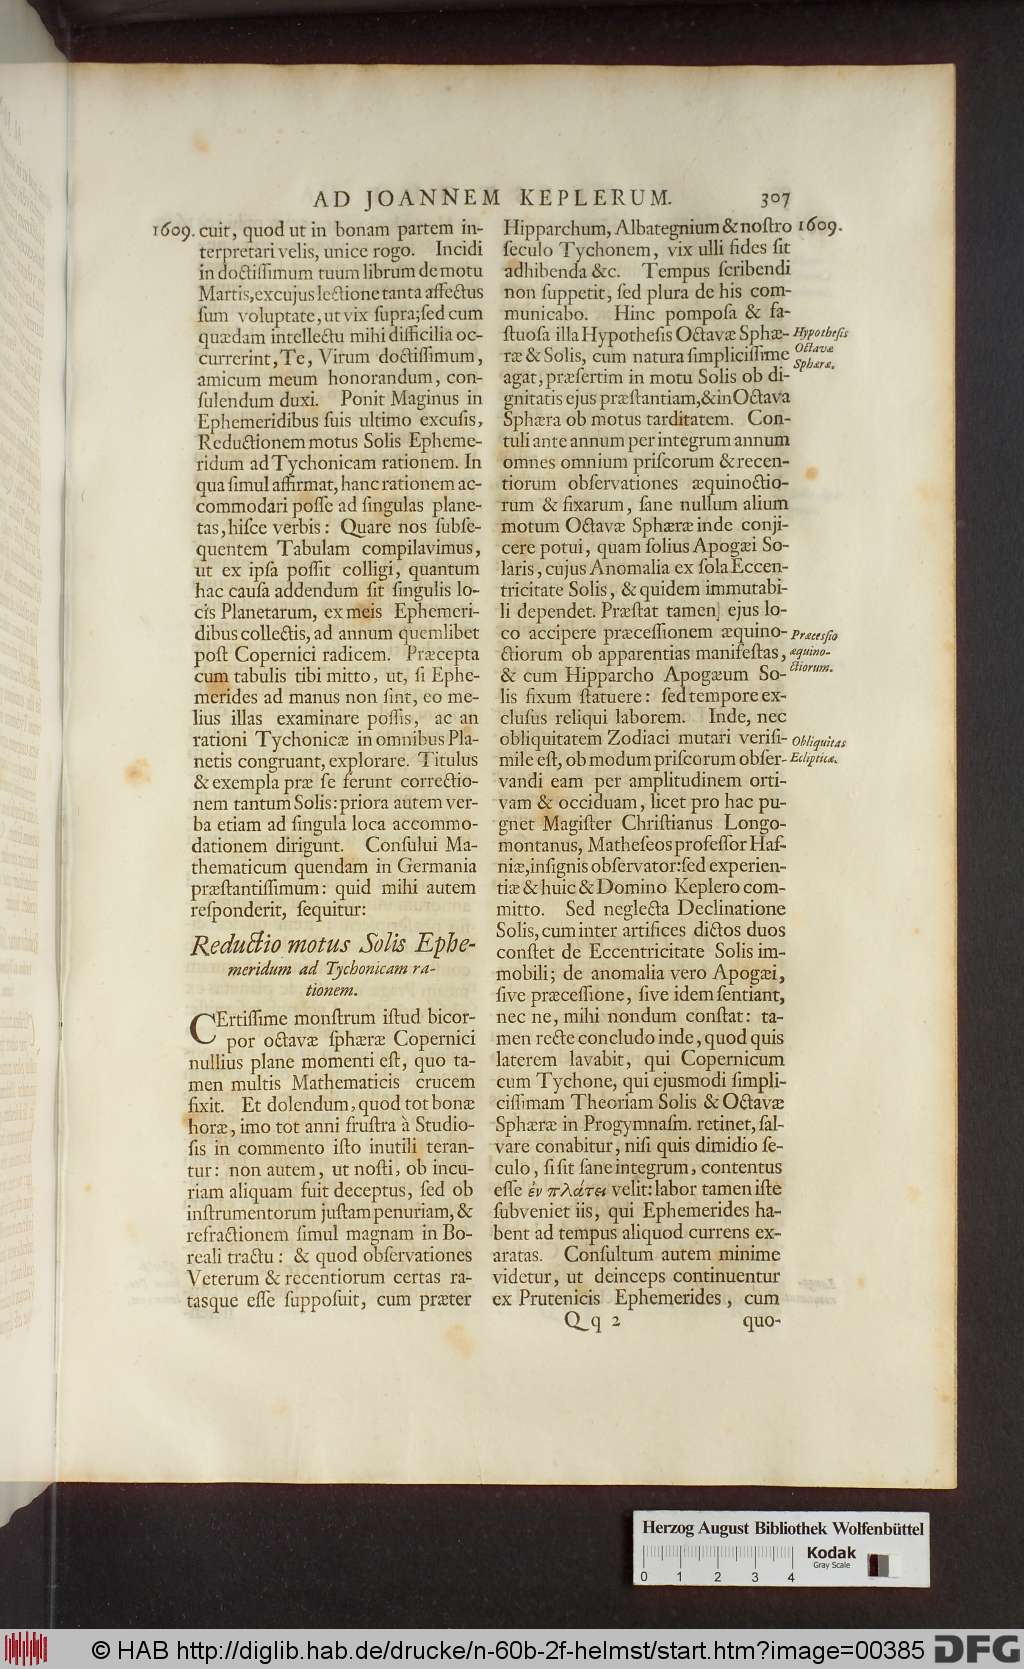 AD JOANNEM KEPLERUM. 307
1609. cuit, quod ut in bonam partem in-
terpretari velis, unice rogo. Incidi
in doctiſſimum tuum librum de motu
Martis, ex cujus lectione tanta affectus
ſum voluptate, ut vix ſupra; ſed cum
quædam intellectu mihi difficilia oc-
currerint, Te, Virum doctiſſimum,
amicum meum honorandum, con-
ſulendum duxi. Ponit Maginus in
Ephemeridibus ſuis ultimo excuſis,
Reductionem motus Solis Epheme-
ridum ad Tychonicam rationem. In
qua ſimul affirmat, hanc rationem ac-
commodari poſſe ad ſingulas plane-
tas, hiſce verbis: Quare nos ſubſe-
quentem Tabulam compilavimus,
ut ex ipſa poſſit colligi, quantum
hac cauſa addendum ſit ſingulis lo-
cis Planetarum, ex meis Ephemeri-
dibus collectis, ad annum quemlibet
poſt Copernici radicem. Præcepta
cum tabulis tibi mitto, ut, ſi Ephe-
merides ad manus non ſint, eo me-
lius illas examinare poſſis, ac an
rationi Tychonicæ in omnibus Pla-
netis congruant, explorare. Titulus
& exempla præ ſe ferunt correctio-
nem tantum Solis: priora autem ver-
ba etiam ad ſingula loca accommo-
dationem dirigunt. Conſului Ma-
thematicum quendam in Germania
præſtantiſſimum: quid mihi autem
reſponderit, ſequitur:
Reductio motus Solis Ephe-
meridum ad Tychonicam ra-
tionem.
CErtiſſime monſtrum iſtud bicor-
por octavæ ſphæræ Copernici
nullius plane momenti eſt, quo ta-
men multis Mathematicis crucem
fixit. Et dolendum, quod tot bonæ
horæ, imo tot anni fruſtra à Studio-
ſis in commento iſto inutili teran-
tur: non autem, ut noſti, ob incu-
riam aliquam fuit deceptus, ſed ob
inſtrumentorum juſtam penuriam, &
refractionem ſimul magnam in Bo-
reali tractu: & quod obſervationes
Veterum & recentiorum certas ra-
tasque eſſe ſuppoſuit, cum præter
Hipparchum, Albategnium & noſtro 1609.
ſeculo Tychonem, vix ulli fides ſit
adhibenda &c. Tempus ſcribendi
non ſuppetit, ſed plura de his com-
municabo. Hinc pompoſa & fa-
ſtuoſa illa Hypotheſis Octavæ Sphæ-
ræ & Solis, cum natura ſimpliciſſime
agat, præſertim in motu Solis ob di-
gnitatis ejus præſtantiam, & in Octava
Sphæra ob motus tarditatem. Con-
tuli ante annum per integrum annum
omnes omnium priſcorum & recen-
tiorum obſervationes æquinoctio-
rum & fixarum, ſane nullum alium
motum Octavæ Sphæræ inde conji-
cere potui, quam ſolius Apogæi So-
laris, cujus Anomalia ex ſola Eccen-
tricitate Solis, & quidem immutabi-
li dependet. Præſtat tamen ejus lo-
co accipere præceſſionem æquino-
ctiorum ob apparentias manifeſtas,
& cum Hipparcho Apogæum So-
lis fixum ſtatuere: ſed tempore ex-
cluſus reliqui laborem. Inde, nec
obliquitatem Zodiaci mutari veriſi-
mile eſt, ob modum priſcorum obſer-
vandi eam per amplitudinem orti-
vam & occiduam, licet pro hac pu-
gnet Magiſter Chriſtianus Longo-
montanus, Matheſeos profeſſor Haf-
niæ, inſignis obſervator: ſed experien-
tiæ & huic & Domino Keplero com-
mitto. Sed neglecta Declinatione
Solis, cum inter artifices dictos duos
conſtet de Eccentricitate Solis im-
mobili; de anomalia vero Apogæi,
ſive præceſſione, ſive idem ſentiant,
nec ne, mihi nondum conſtat: ta-
men recte concludo inde, quod quis
laterem lavabit, qui Copernicum
cum Tychone, qui ejusmodi ſimpli-
ciſſimam Theoriam Solis & Octavæ
Sphæræ in Progymnaſm. retinet, ſal-
vare conabitur, niſi quis dimidio ſe-
culo, ſi ſit ſane integrum, contentus
eſſe ἐν πλάτει velit: labor tamen iſte
ſubveniet iis, qui Ephemerides ha-
bent ad tempus aliquod currens ex-
aratas. Conſultum autem minime
videtur, ut deinceps continuentur
ex Prutenicis Ephemerides, cum
Hypotheſis
Octavæ
Sphæræ.
Præceſſio
æquino-
ctiorum.
Obliquitas
Eclipticæ.
Qq 2 quo-
Herzog August Bibliothek Wolfenbüttel
0 1 2 3 4
Kodak
Gray Scale
© HAB http://diglib.hab.de/drucke/n-60b-2f-helmst/start.htm?image=00385 DFG